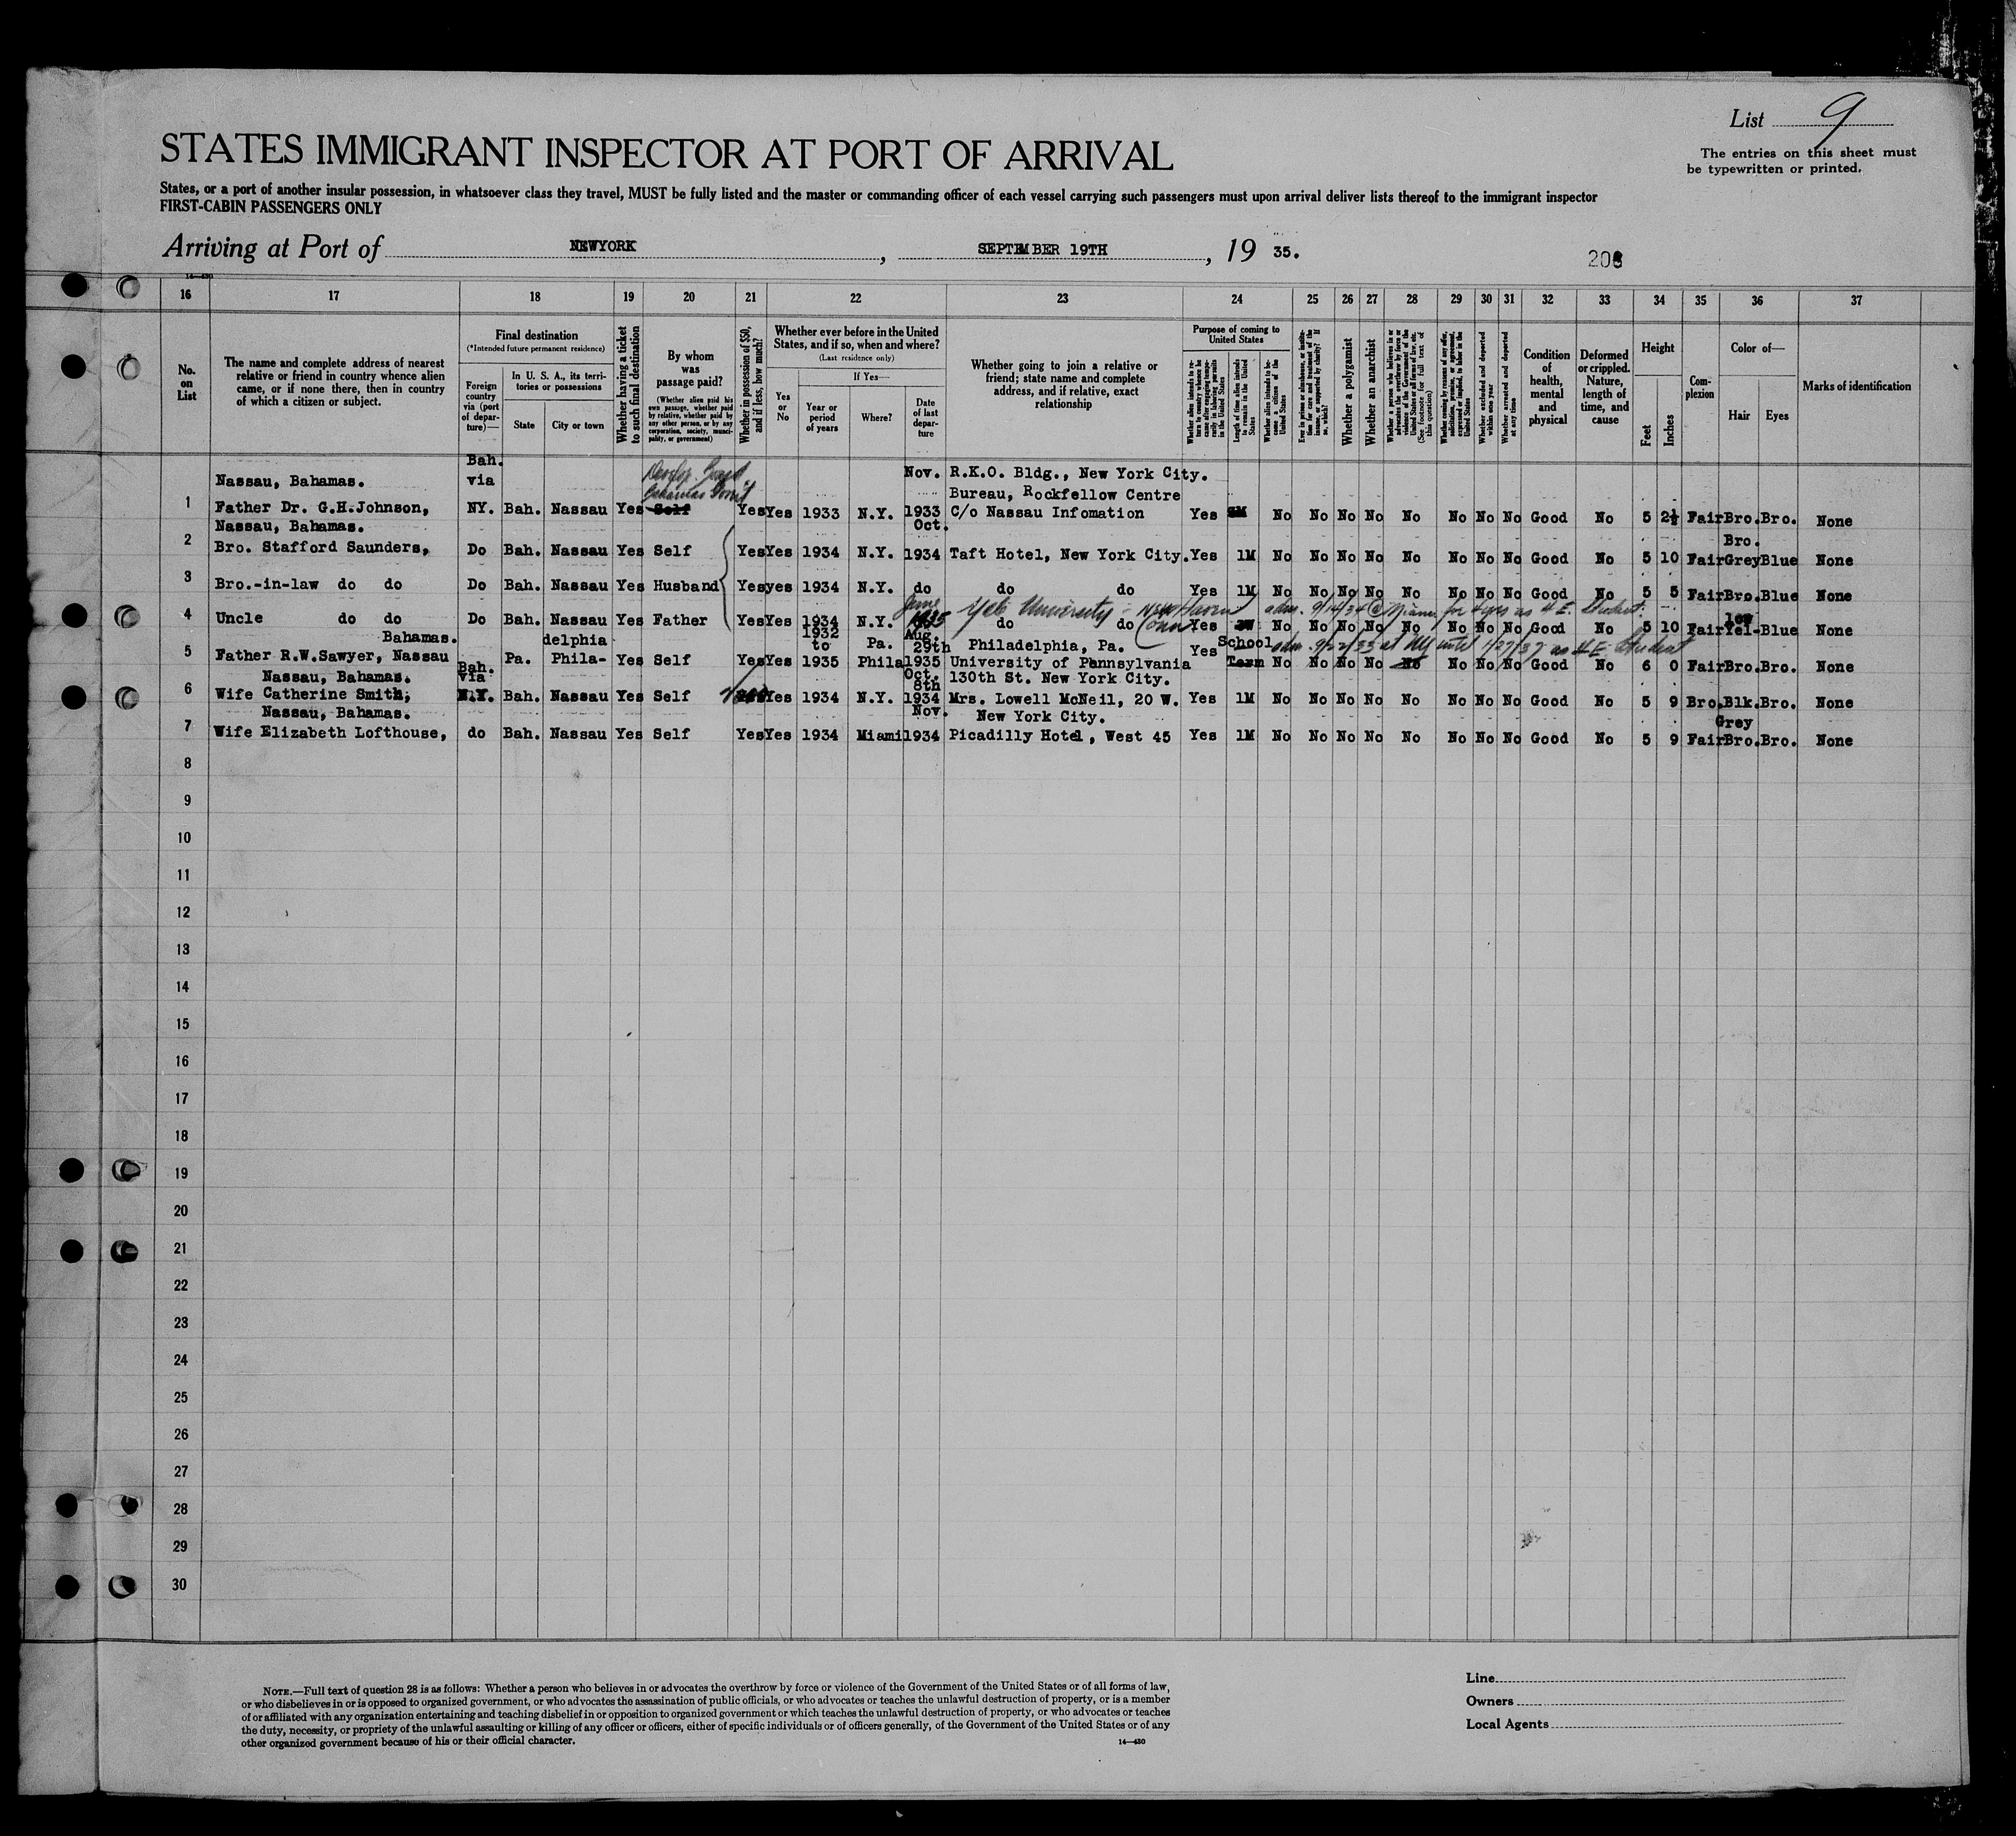 List 9
The entries on this sheet must
be typewritten or printed.
STATES IMMIGRANT INSPECTOR AT PORT OF ARRIVAL
States, or a port of another insular possession, in whatsoever class they travel, MUST be fully listed and the master or commanding officer of each vessel carrying such passengers must upon arrival deliver lists thereof to the immigrant inspector
FIRST-CABIN PASSENGERS ONLY
Arriving at Port of NEWYORK, SEPTEMBER 19TH, 19 35.
14—430
16 17 18 19 20 21 22 23 24 25 26 27 28 29 30 31 32 33 34 35 36 37
No. on List
The name and complete address of nearest relative or friend in country whence alien came, or if none there, then in country of which a citizen or subject.
Final destination
(*Intended future permanent residence)
Foreign country via (port of departure)—
In U. S. A., its territories or possessions
State
City or town
Whether having a ticket to such final destination
By whom was passage paid?
(Whether alien paid his own passage, whether paid by relative, whether paid by any other person, or by any corporation, society, municipality, or government)
Whether in possession of $50, and if less, how much?
Whether ever before in the United States, and if so, when and where?
(Last residence only)
Yes or No
If Yes—
Year or period of years
Where?
Date of last departure
Whether going to join a relative or friend; state name and complete address, and if relative, exact relationship
Purpose of coming to United States
Whether alien intends to return to country whence he came after engaging temporarily in laboring pursuits in the United States
Length of time alien intends to remain in the United States
Whether alien intends to become a citizen of the United States
Whether a polygamist
Whether an anarchist
Whether excluded and deported within one year
Whether arrested and deported at any time
Condition of health, mental and physical
Deformed or crippled. Nature, length of time, and cause
Height
Feet
Inches
Complexion
Color of—
Hair
Eyes
Marks of identification
Bah.
Nassau, Bahamas. via Nov. R.K.O. Bldg., New York City.
Bahamas Govt Bureau, Rockfellow Centre
1 Father Dr. G.H.Johnson, NY. Bah. Nassau Yes Self Yes Yes 1933 N.Y. 1933 C/o Nassau Infomation Yes No No No No No No No No Good No 5 2½ Fair Bro. Bro. None
Nassau, Bahamas. Oct. Bro.
2 Bro. Stafford Saunders, Do Bah. Nassau Yes Self Yes Yes 1934 N.Y. 1934 Taft Hotel, New York City. Yes 1M No No No No No No No No Good No 5 10 Fair Grey Blue None
3 Bro.-in-law do do Do Bah. Nassau Yes Husband Yes yes 1934 N.Y. do do do Yes 1M No No No No No No No No Good No 5 5 Fair Bro. Blue None
June 1935 Yale University - New Haven Conn adm. 9/14/34 @ Miami for 4 yrs as 4 E. Student. low
4 Uncle do do Do Bah. Nassau Yes Father Yes Yes 1934 N.Y. do do Yes No No No No No No No No Good No 5 10 Fair Yel- Blue None
Bahamas. delphia 1932 to Pa. Aug. 29th Philadelphia, Pa. School adm. 9/22/33 at NY until 1/27/37 as 4 E. Student
5 Father R.W.Sawyer, Nassau Pa. Phila- Yes Self Yes Yes 1935 Phila 1935 University of Pennsylvania Yes Term No No No No No No No No Good No 6 0 Fair Bro. Bro. None
Nassau, Bahamas. Bah. via Oct. 8th 130th St. New York City.
6 Wife Catherine Smith, N.Y. Bah. Nassau Yes Self Yes 1934 N.Y. 1934 Mrs. Lowell McNeil, 20 W. Yes 1M No No No No No No No No Good No 5 9 Bro. Blk. Bro. None
Nassau, Bahamas. Nov. New York City. Grey
7 Wife Elizabeth Lofthouse, do Bah. Nassau Yes Self Yes Yes 1934 Miami 1934 Picadilly Hotel, West 45 Yes 1M No No No No No No No No Good No 5 9 Fair Bro. Bro. None
8
9
10
11
12
13
14
15
16
17
18
19
20
21
22
23
24
25
26
27
28
29
30
NOTE.—Full text of question 28 is as follows: Whether a person who believes in or advocates the overthrow by force or violence of the Government of the United States or of all forms of law,
or who disbelieves in or is opposed to organized government, or who advocates the assassination of public officials, or who advocates or teaches the unlawful destruction of property, or is a member
of or affiliated with any organization entertaining and teaching disbelief in or opposition to organized government or which teaches the unlawful destruction of property, or who advocates or teaches
the duty, necessity, or propriety of the unlawful assaulting or killing of any officer or officers, either of specific individuals or of officers generally, of the Government of the United States or of any
other organized government because of his or their official character.
14—430
Line
Owners
Local Agents